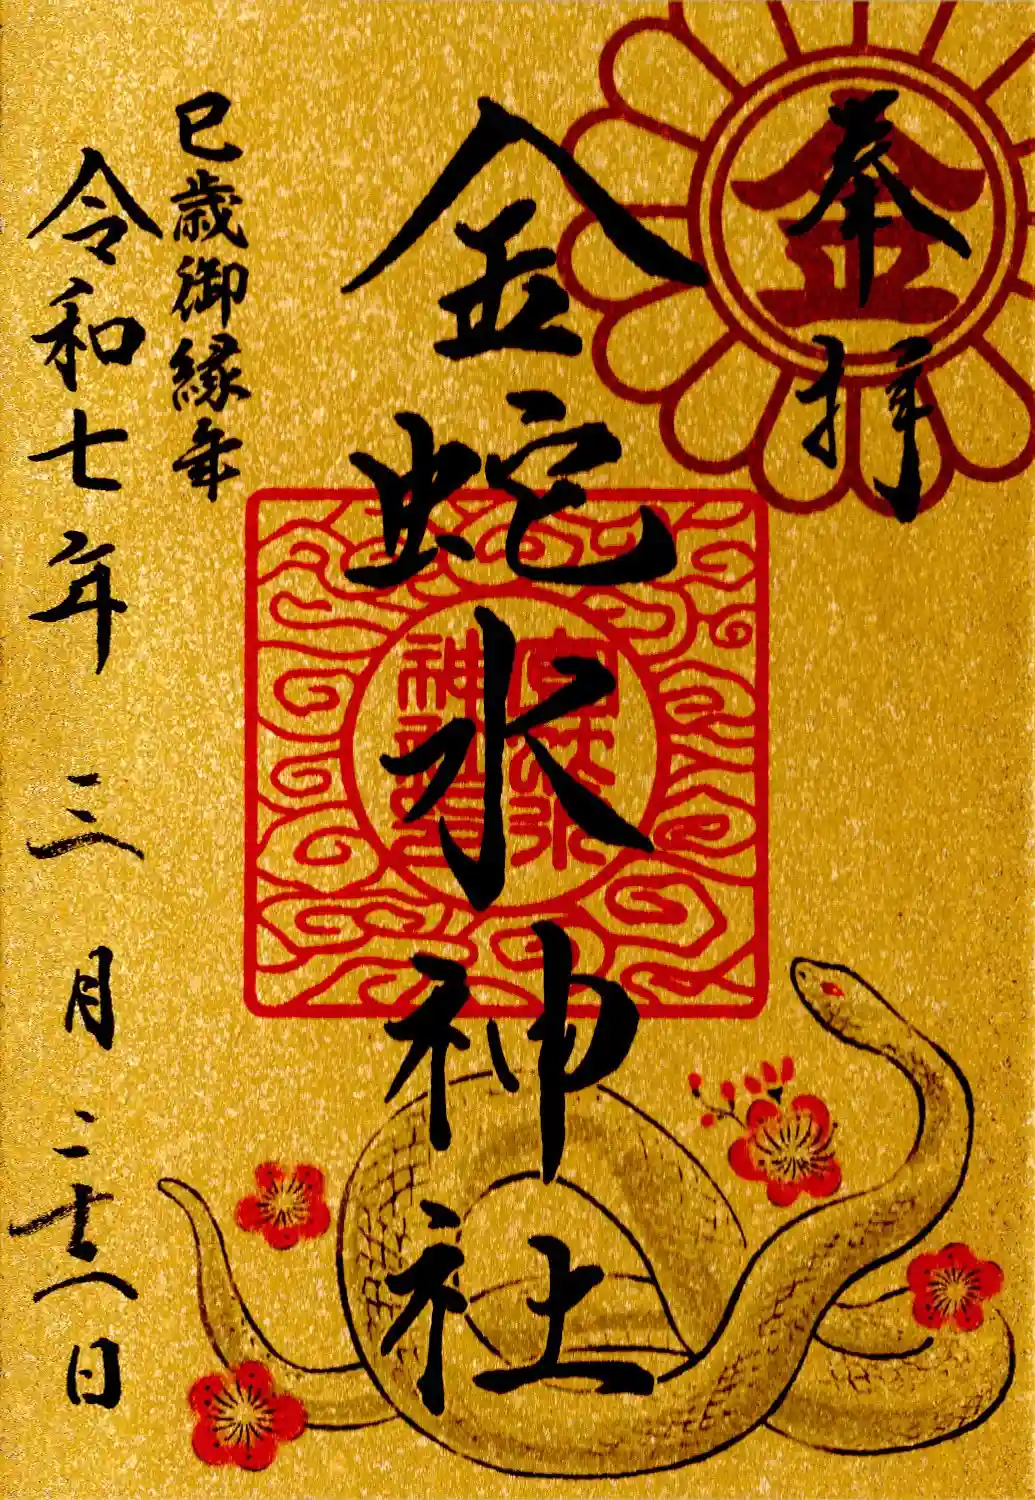 奉拝
金
金蛇水神社
宮蛇水
神社
巳歳御縁年
令和七年三月二十八日